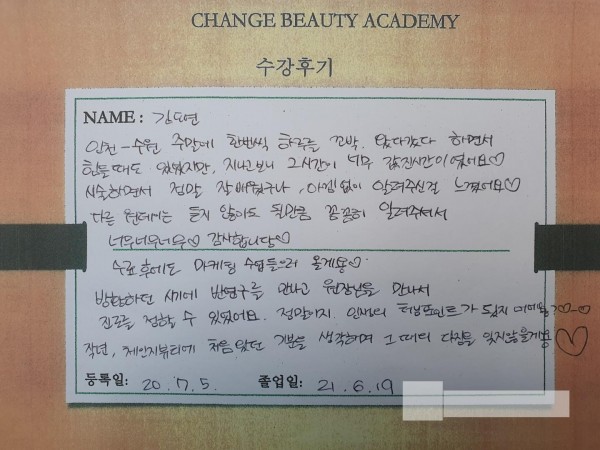 CHANGE BEAUTY ACADEMY
수강후기
NAME : 김도연
인천-수원 주말에 한번씩 하루를 꼬박 왔다갔다 하면서
힘들때도 있었지만, 지나고보니 그시간이 너무 값진시간이였어요♡
시술하면서 정말 잘배웠구나, 아낌없이 알려주신걸 느꼈어요♡
다른 원데이는 듣지 않아도 될만큼 꼼꼼히 알려주셔서
너무너무너무♡ 감사합니당♡
수료후에도 마케팅 수업들으러 올게용♡
방황하던 시기에 반영구를 만나고 원장님을 만나서
진로를 정할 수 있었어요. 정말이지. 인생의 터닝포인트가 된지
작년, 체인지뷰티에 처음왔던 기분을 생각하며 그 때의 다짐을 잊지않을게용 ♡
등록일: 20. 7. 5. 졸업일: 21. 6. 19